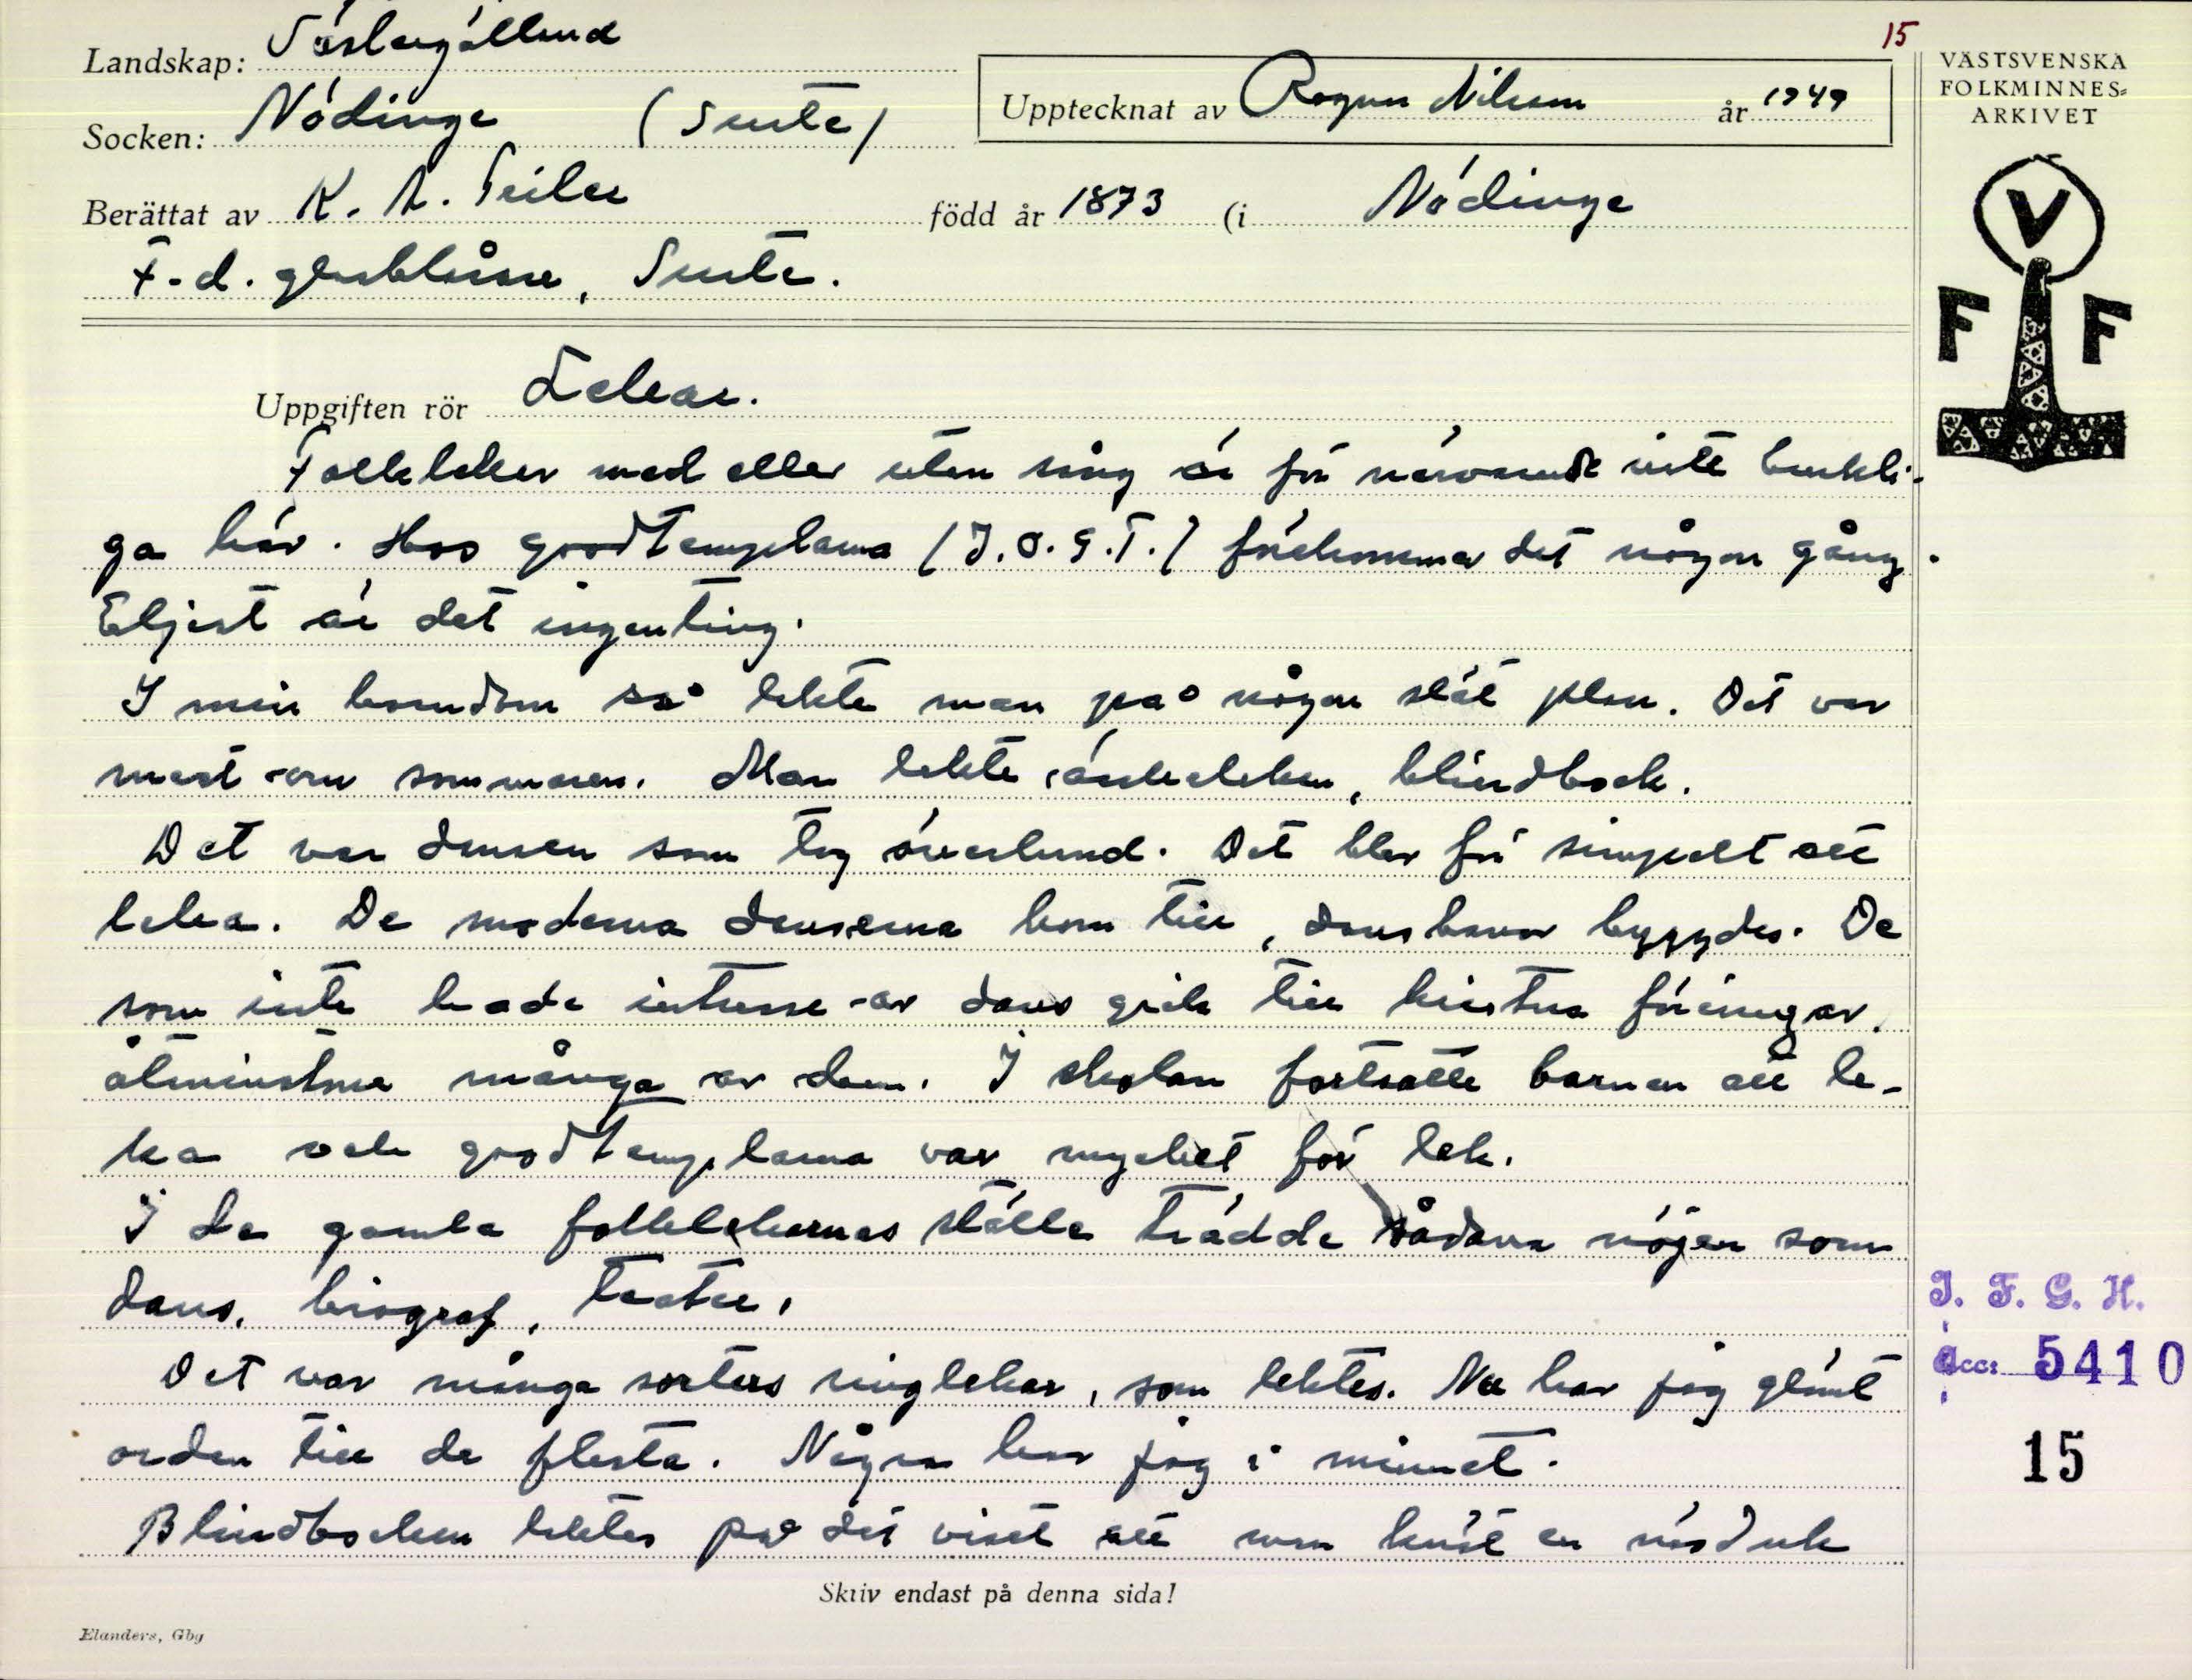 15
Landskap: Västergötland
Socken: Nödinge (Surte)
Upptecknat av Ragnar Nilsson år 1949
VÄSTSVENSKA
FOLKMINNES-
ARKIVET
Berättat av K. A. född år 1873 (i Nödinge
F.d. glasblåsare, Surte.
V
F F
Uppgiften rör Lekar.
Folklekar med eller utan sång är för närvarande inte brukli-
ga här. Hos godtemplarna (I.O.G.T.) förekommer det någon gång.
Eljest är det ingenting.
I min barndom så lekte man på någon slät plan. Det var
mest om sommaren. Man lekte änkeleken, blindbock.
Det var dansen som tog överhand. Det blev för simpelt att
leka. De moderna danserna kom till, dansbanor byggdes. De
som inte hade intresse av dans gick till kristna föreningar,
åtminstone många av dem. I skolan fortsatte barnen att le-
ka och godtemplarna var mycket för lek.
I de gamla folklekarnas ställe trädde sådana nöjen som
dans, biograf, teater.
Det var många sorters ringlekar, som lektes. Nu har jag glömt
orden till de flesta. Några har jag i minnet.
Blindbocken lektes på det viset att man knöt en näsduk
I. F. G. H.
acc: 5410
15
Skriv endast på denna sida!
Elanders, Gbg